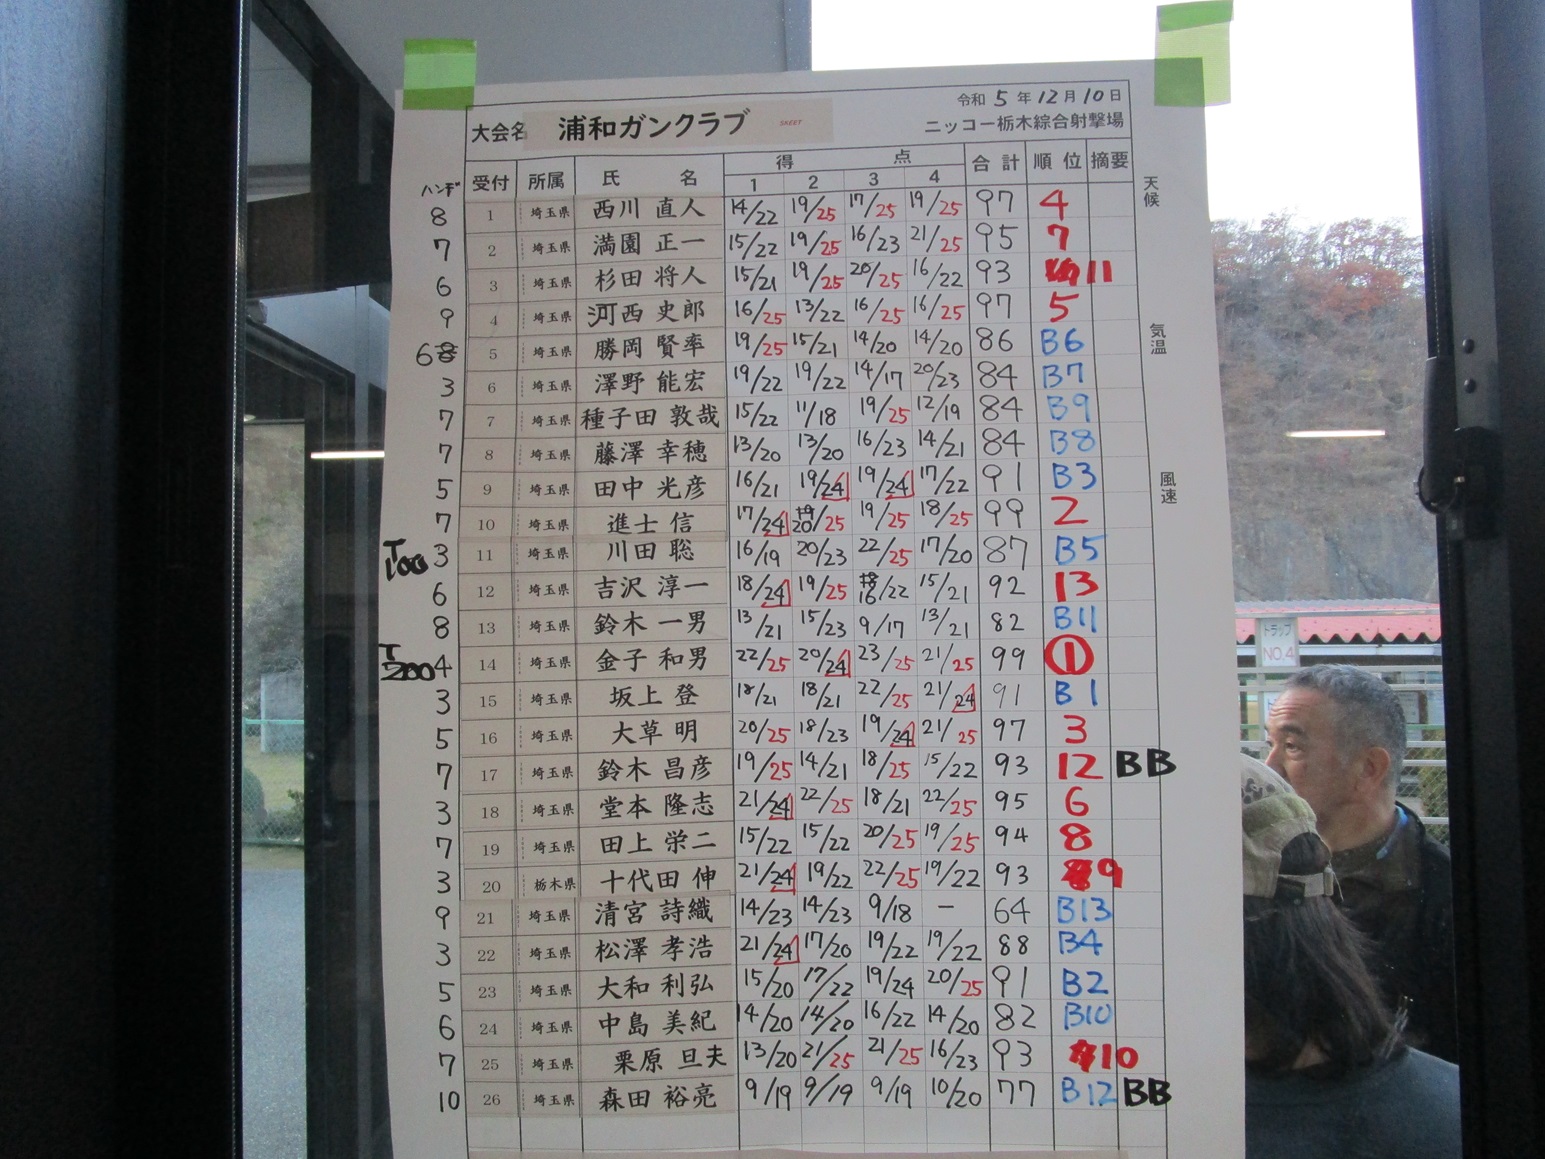 令和 5 年 12 月 10 日
大会名 浦和ガンクラブ SKEET ニッコー栃木綜合射撃場
ハンデ 受付 所属 氏 名 得 点 合計 順位 摘要
1 2 3 4
天候
8 1 埼玉県 西川 直人 14/22 19/25 17/25 19/25 97 4
7 2 埼玉県 満園 正一 15/22 19/25 16/23 21/25 95 7
6 3 埼玉県 杉田 将人 15/21 19/25 20/25 16/22 93 11
9 4 埼玉県 河西 史郎 16/25 13/22 16/25 16/25 97 5
気温
6 8 5 埼玉県 勝岡 賢率 19/25 15/21 14/20 14/20 86 B6
3 6 埼玉県 澤野 能宏 19/22 19/22 14/17 20/23 84 B7
7 7 埼玉県 種子田 敦哉 15/22 11/18 19/25 12/19 84 B9
7 8 埼玉県 藤澤 幸穂 13/20 13/20 16/23 14/21 84 B8
5 9 埼玉県 田中 光彦 16/21 19/24 19/24 17/22 91 B3
風速
7 10 埼玉県 進士 信 17/24 20/25 19/25 18/25 99 2
T100 3 11 埼玉県 川田 聡 16/19 20/23 22/25 17/20 87 B5
6 12 埼玉県 吉沢 淳一 18/24 19/25 16/22 15/21 92 13
8 13 埼玉県 鈴木 一男 13/21 15/23 9/17 13/21 82 B11
T200 4 14 埼玉県 金子 和男 22/25 20/24 23/25 21/25 99 ①
3 15 埼玉県 坂上 登 18/21 18/21 22/25 21/24 91 B1
5 16 埼玉県 大草 明 20/25 18/23 19/24 21/25 97 3
7 17 埼玉県 鈴木 昌彦 19/25 14/21 18/25 15/22 93 12 BB
3 18 埼玉県 堂本 隆志 21/24 22/25 18/21 22/25 95 6
7 19 埼玉県 田上 栄二 15/22 15/22 20/25 19/25 94 8
3 20 栃木県 十代田 伸 21/24 19/22 22/25 19/22 93 9
9 21 埼玉県 清宮 詩織 14/23 14/23 9/18 － 64 B13
3 22 埼玉県 松澤 孝浩 21/24 17/20 19/22 19/22 88 B4
5 23 埼玉県 大和 利弘 15/20 17/22 19/24 20/25 91 B2
6 24 埼玉県 中島 美紀 14/20 14/20 16/22 14/20 82 B10
7 25 埼玉県 栗原 旦夫 13/20 21/25 21/25 16/23 93 10
10 26 埼玉県 森田 裕亮 9/19 9/19 9/19 10/20 77 B12 BB
トラップ
NO.4